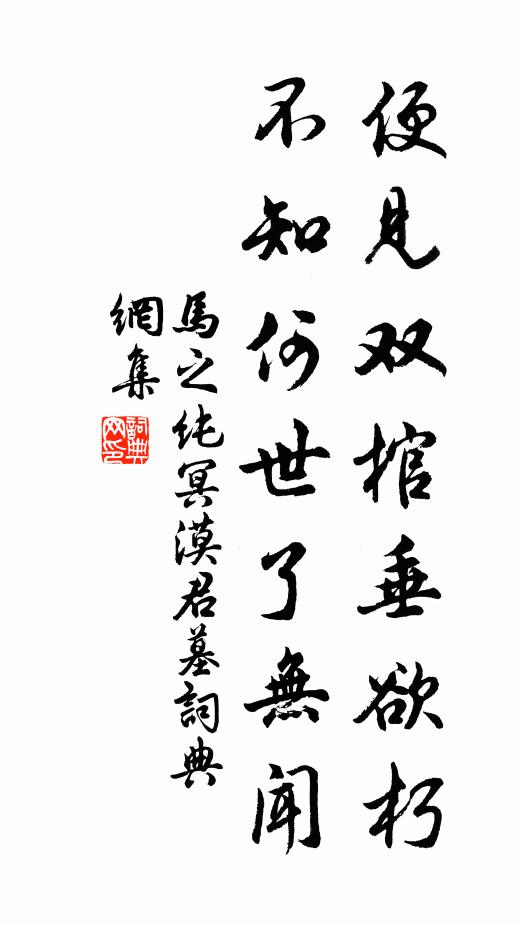 便见双棺垂欲朽
不知何世了無闻
馬之纯冥漠君墓詞典
網集
詞典
网印